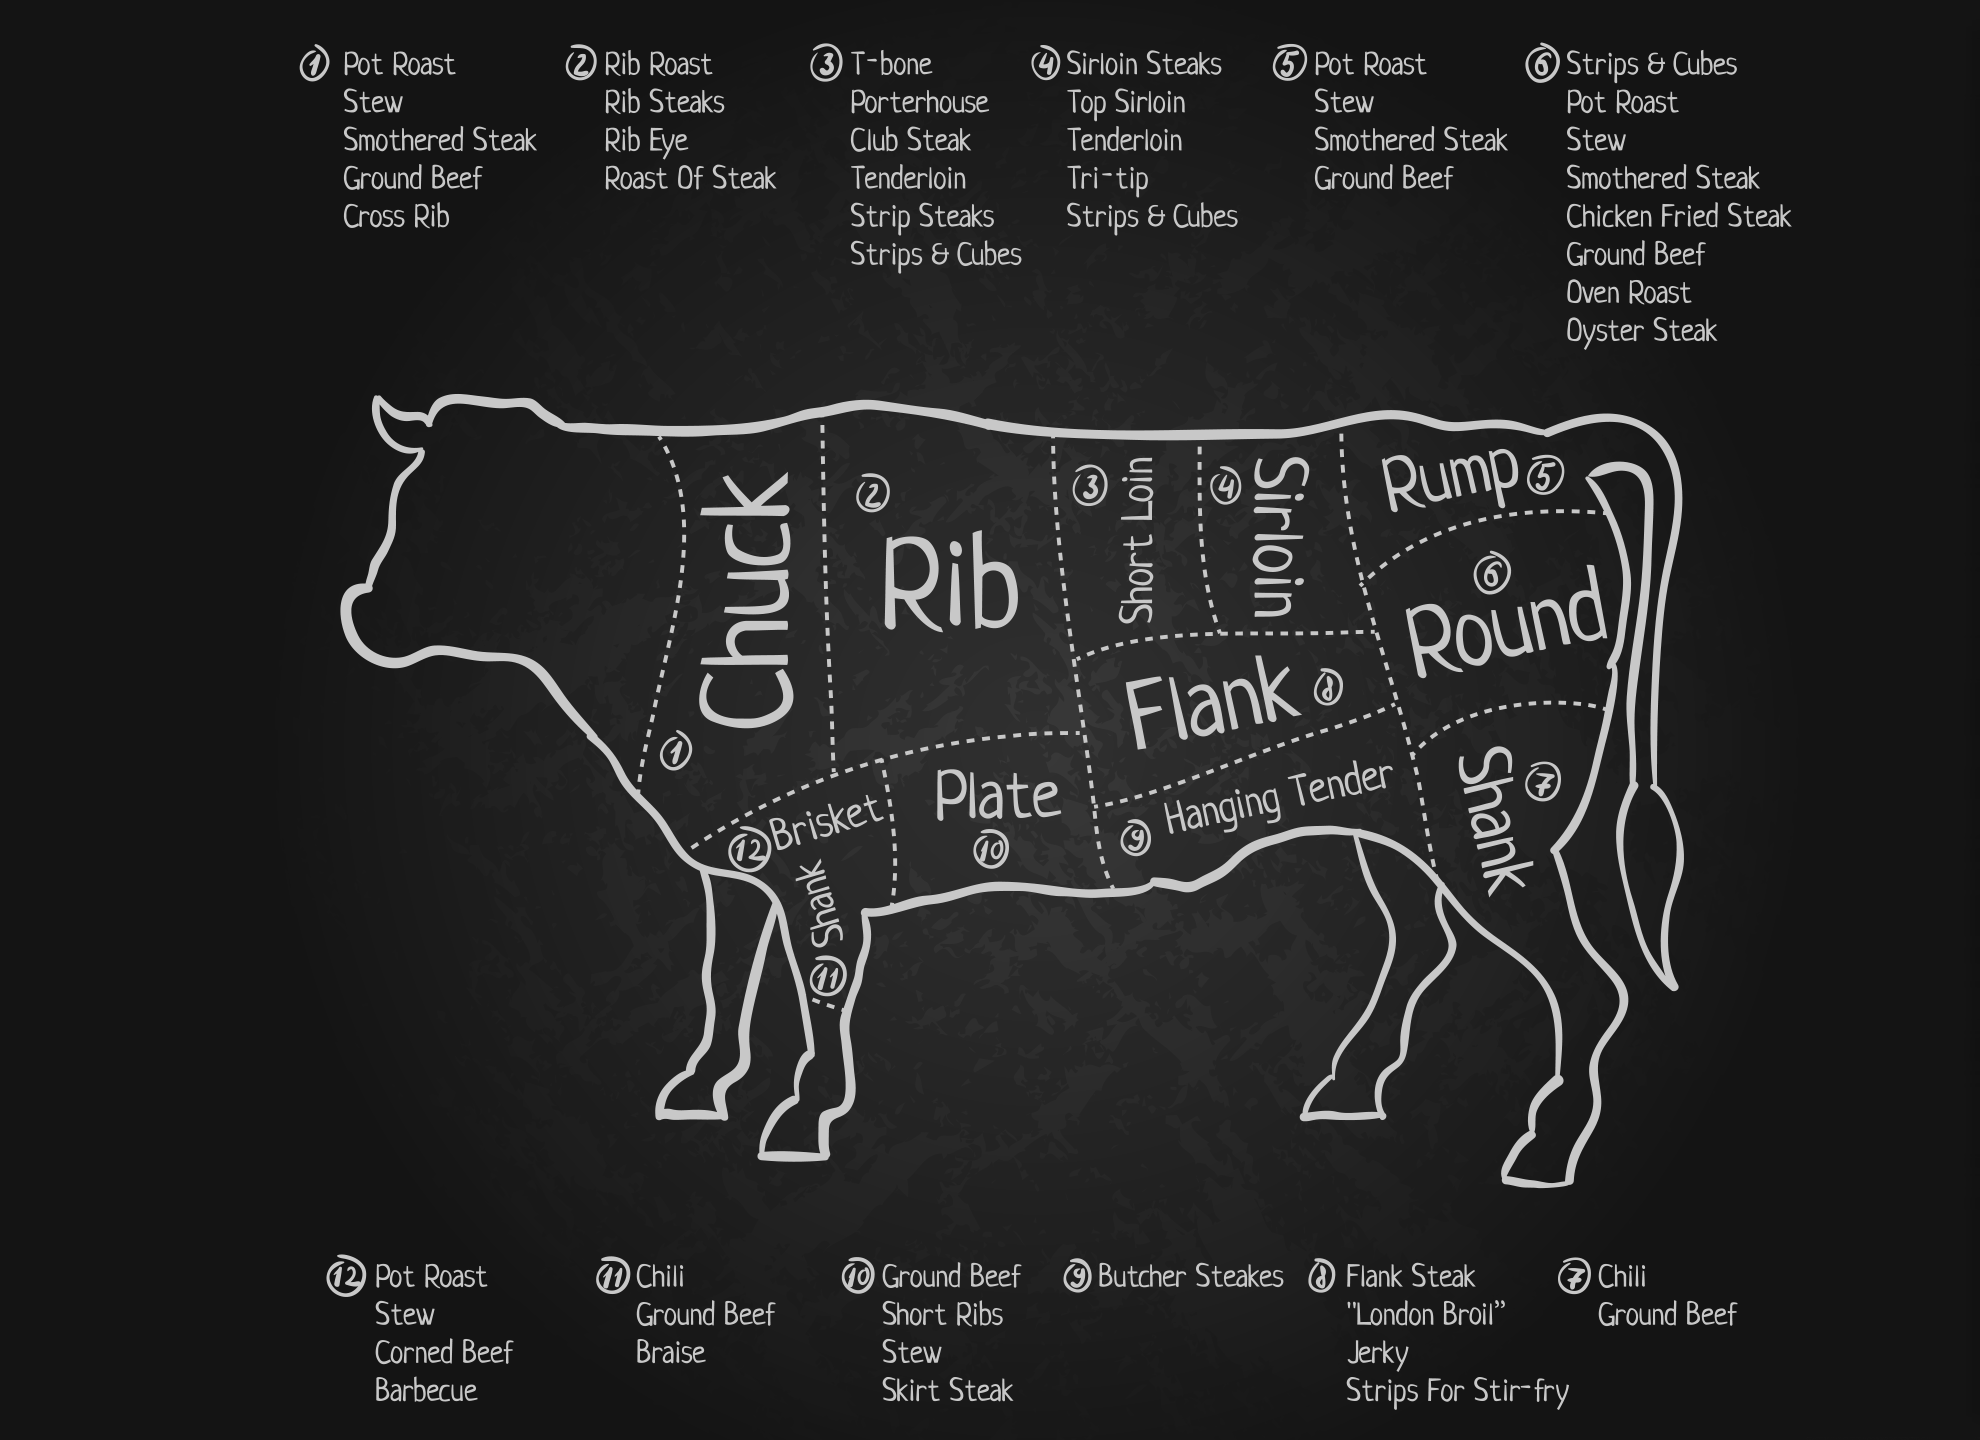 1 Pot Roast
Stew
Smothered Steak
Ground Beef
Cross Rib
2 Rib Roast
Rib Steaks
Rib Eye
Roast Of Steak
3 T-bone
Porterhouse
Club Steak
Tenderloin
Strip Steaks
Strips & Cubes
4 Sirloin Steaks
Top Sirloin
Tenderloin
Tri-tip
Strips & Cubes
5 Pot Roast
Stew
Smothered Steak
Ground Beef
6 Strips & Cubes
Pot Roast
Stew
Smothered Steak
Chicken Fried Steak
Ground Beef
Oven Roast
Oyster Steak
Chuck
1
2
Rib
3
Short Loin
4
Sirloin
Rump 5
6
Round
Flank 8
Shank
7
Hanging Tender
9
Plate
10
12 Brisket
Shank
11
12 Pot Roast
Stew
Corned Beef
Barbecue
11 Chili
Ground Beef
Braise
10 Ground Beef
Short Ribs
Stew
Skirt Steak
9 Butcher Steakes
8 Flank Steak
"London Broil”
Jerky
Strips For Stir-fry
7 Chili
Ground Beef